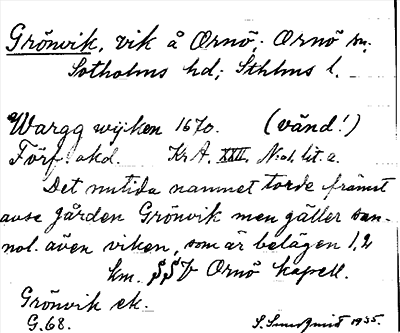 Grönvik, vik å Ornö, Ornö sn,
Sotholms hd; Sthlms l.
Wargg wijken 1670. (vänd!)
Förf. akd. Kr A. XXII, N:o 1, lit. a.
Det nutida namnet torde främst
avse gården Grönvik men gäller san-
nol. även viken, som är belägen 1,2
km. SSV Ornö kapell.
Grönvik ek.
G. 68. 1935.